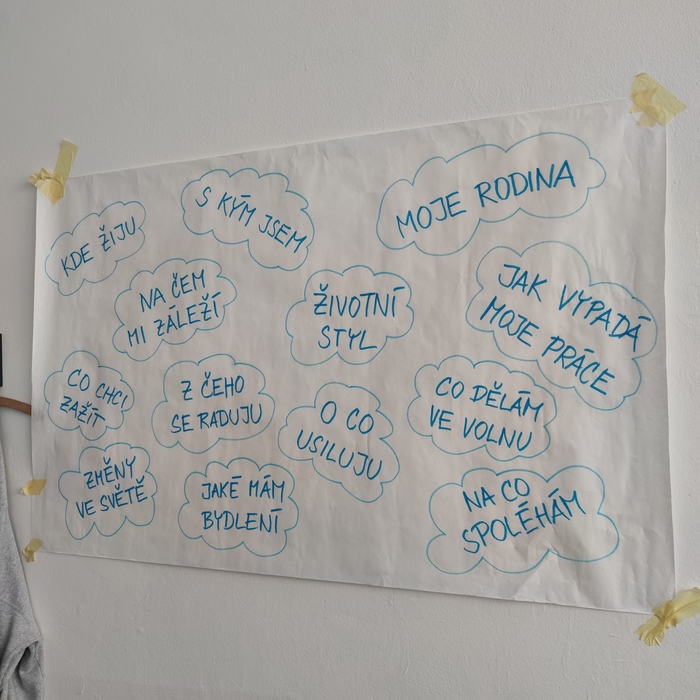 KDE ŽIJU
S KÝM JSEM
MOJE RODINA
NA ČEM
MI ZÁLEŽÍ
ŽIVOTNÍ
STYL
JAK VYPADÁ
MOJE PRÁCE
CO CHCI
ZAŽÍT
Z ČEHO
SE RADUJU
O CO
USILUJU
CO DĚLÁM
VE VOLNU
ZMĚNY
VE SVĚTĚ
JAKÉ MÁM
BYDLENÍ
NA CO
SPOLÉHÁM